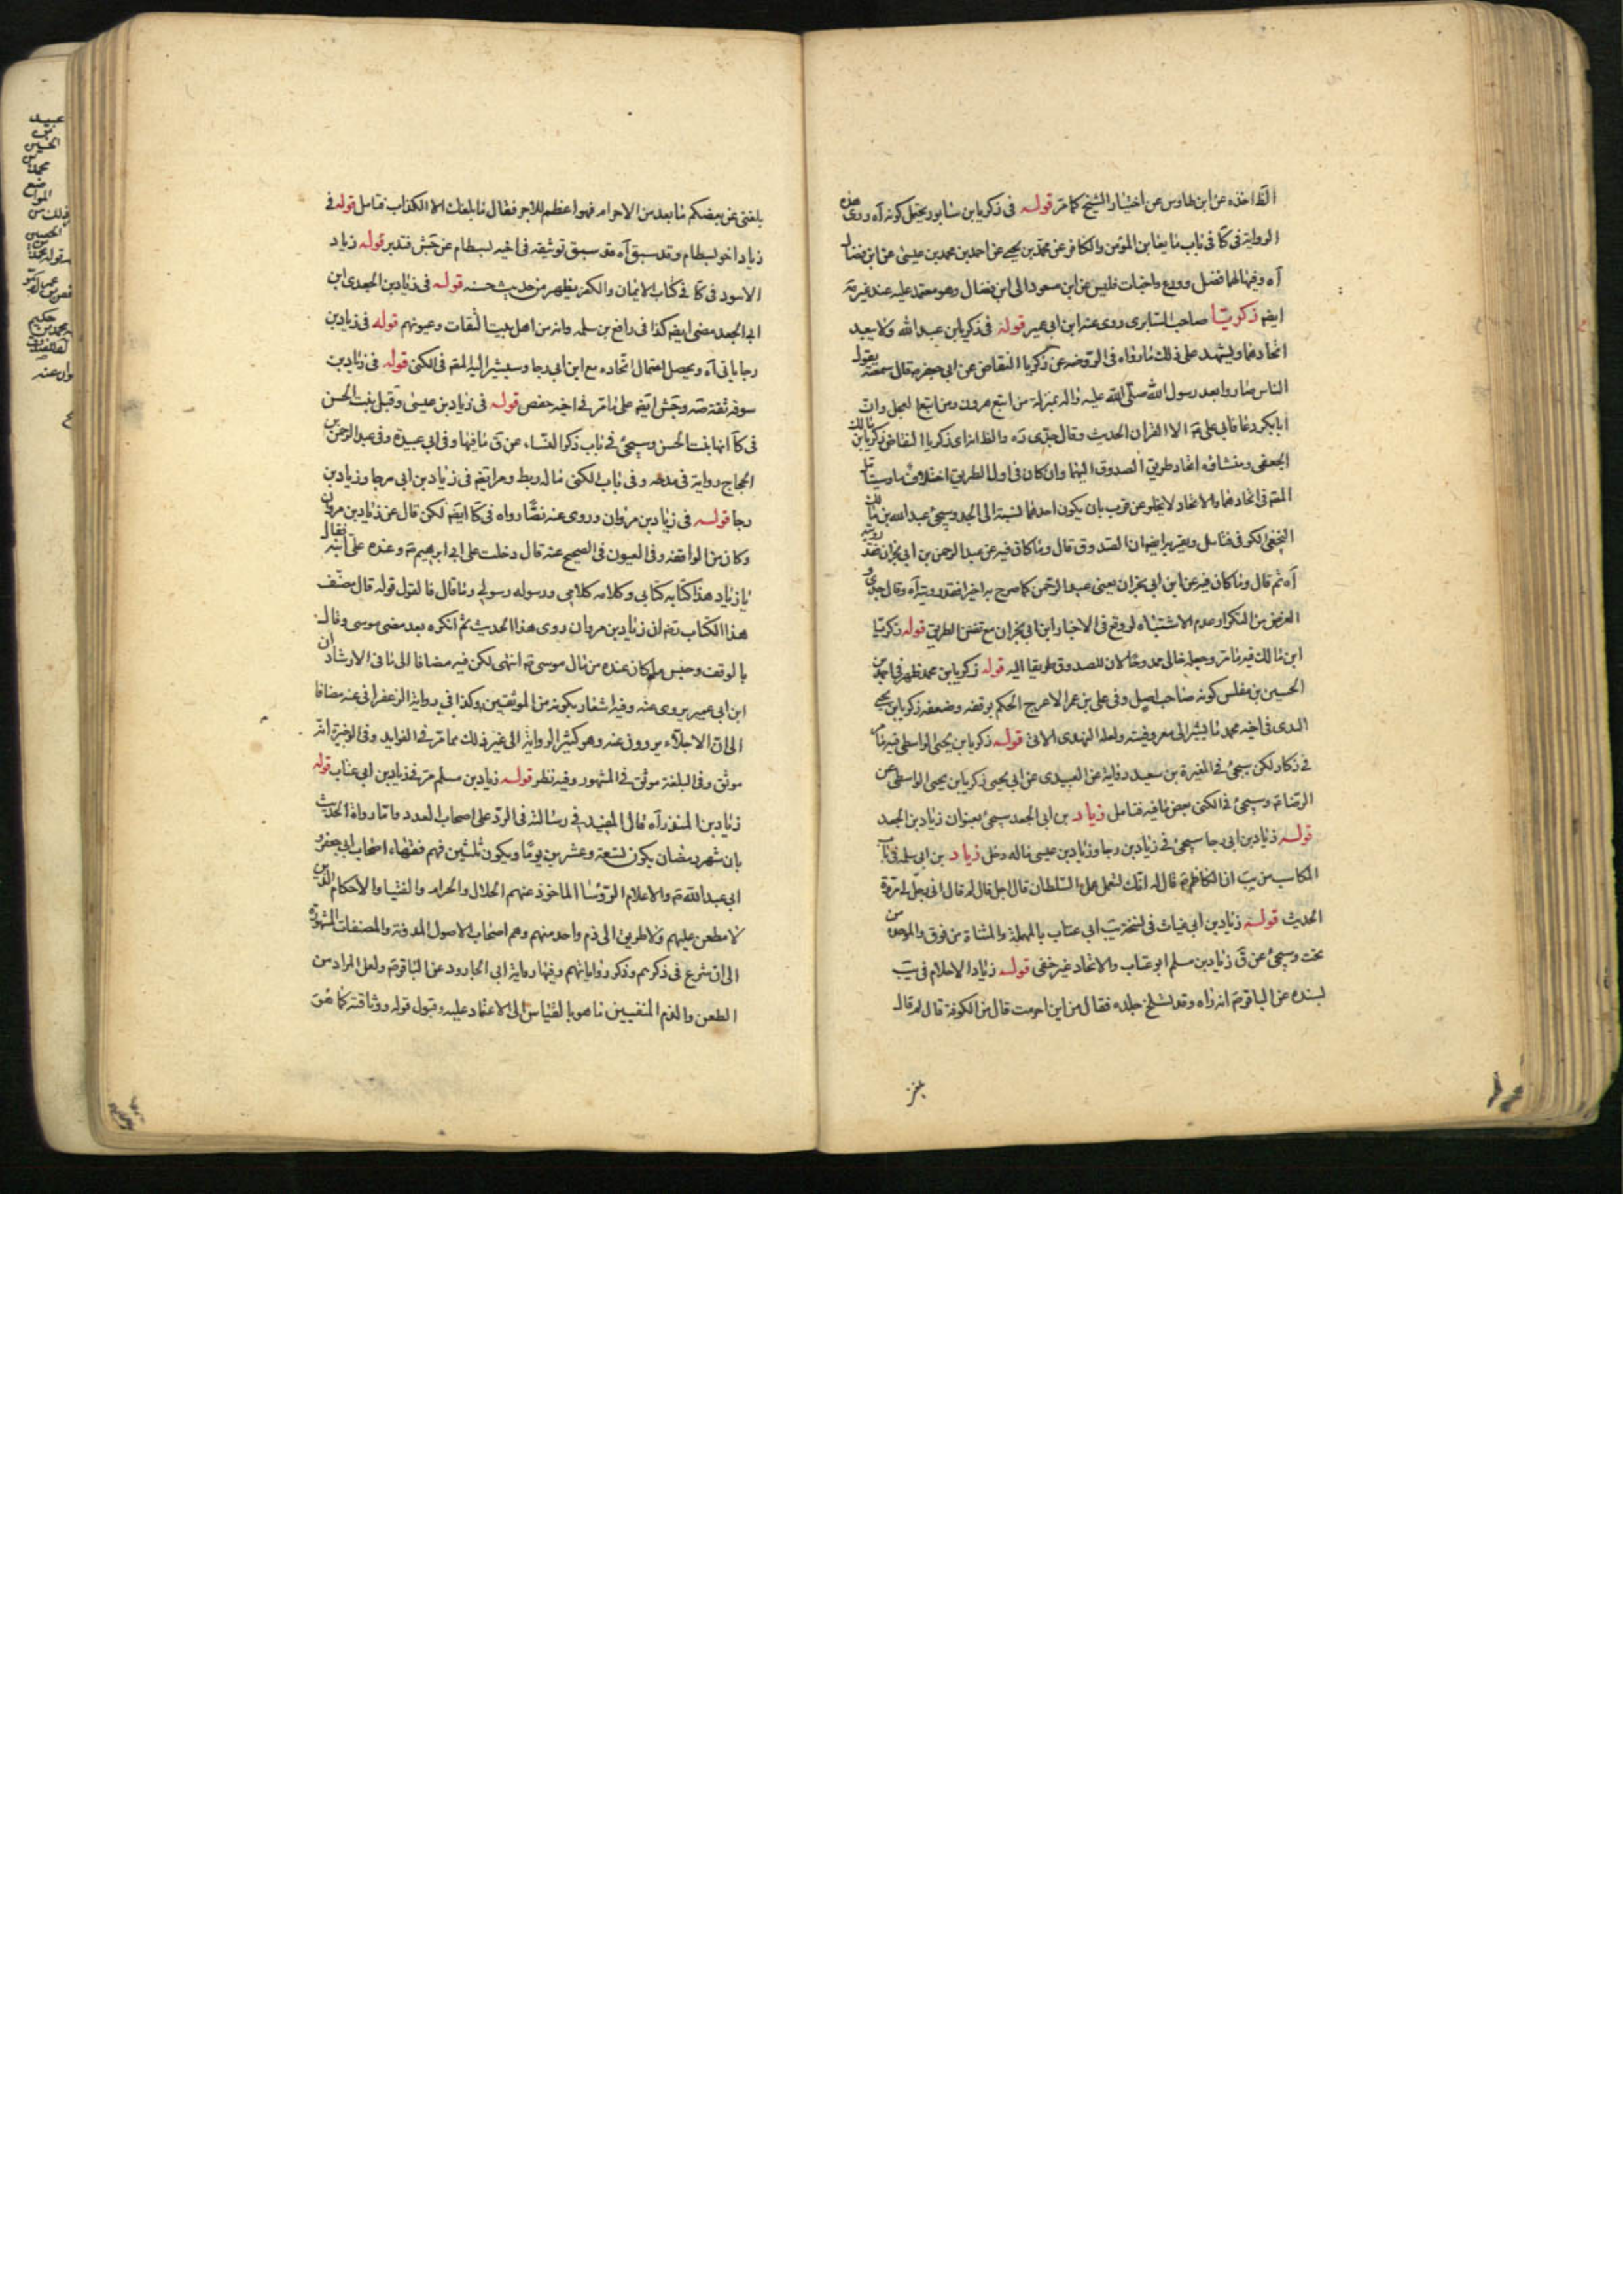 الظ اخذه عن ابن طاوس عن اختيار الشيخ كما مر قوله فى زكريا بن سابور يحتمل كونه آه روى هذه
الرواية فى كا فى باب ما يعاين المؤمن والكافر عن محمد بن يحيى عن احمد بن محمد بن عيسى عن ابن فضال
آه وفيها لهما فضل وورع واخبات فليس عن ابن مسعود الى ابن فضال وهو معتمد عليه عند غيره
ايضم زكريا صاحب السابرى روى عنه ابن ابى عمير قوله فى زكريا بن عبد الله ولا يبعد
اتحادهما ويشهد على ذلك ما رواه فى الروضة عن زكريا النقاض عن ابى جعفر قال سمعته يقول
الناس صاروا بعد رسول الله صلى الله عليه واله بمنزلة من اتبع هرون ومن اتبع العجل وان
ابابكر دعا فابى على الا القران الحديث وقال جدى ره والظ ان زكريا النقاض زكريا بن مالك
الجعفى ومنشاؤه اتحاد طريق الصدوق اليهما وان كان فى اول الطريق اختلاف ما وسيتا مل
المقم فى اتحادهما والاتحاد لا يخلو عن قرب بان يكون احدهما لنسبة الى الجد وسيجئ عبد الله بن مالك
النخعى الكوفى فتامل ويقربه ايضم ان الصدوق قال وما كان فيه عن عبد الرحمن بن ابى نجران فقد رويته
آه ثم قال وما كان فيه عن ابن ابى نجران يعنى عبد الرحمن كما صرح به اخيرا فقد رويته آه وقال جدى و
الغرض من التكرار عدم الاشتباه لو وقع فى الاخبار ابن ابى نجران مع تفنن الطريق قوله زكريا
ابن مالك فيه ما مر وجعله خالى ممدوحا لان للصدوق طريقا اليه قوله زكريا بن محمد ظهر فى احمد بن
الحسين بن مفلس كونه صاحب اصل وفى على بن عمر الاعرج الحكم بوقفه وضعفه زكريا بن يحيى
الندى فى اخيه محمد ما يشير الى معروفيته ولعله النهدى الاتى قوله زكريا بن يحيى الواسطى فيه ما مر
فى ذكار لكن سيجئ فى المغيرة بن سعيد رواية عن العبيدى عن ابى يحيى زكريا بن يحيى الواسطى عن
الرضا وسيجئ فى الكنى بعض ما فيه فتامل زياد بن ابى الجعد سيجئ بعنوان زياد بن الجعد
قوله زياد بن ابى رجا سيجئ فى زياد بن رجا وزياد بن عيسى ماله دخل زياد بن ابى سلمه فى باب
المكاسب من يب ان الكاظم قال له انك لتعمل عمل السلطان قال اجل قال لم قال انى رجل لى مروة
الحديث قوله زياد بن ابى غياث فى نسخة يب ابى عتاب بالمهملة والمثناة من فوق والموحدة من
تحت وسيجئ عن ق زياد بن مسلم ابو عتاب والاتحاد غير خفى قوله زياد الاحلام فى يب
بسنده عن الباقر انه راه وقد تسلخ جلده فقال من اين احرمت قال من الكوفة قال لم قال
بلغنى
بلغنى عن بعضكم ما بعد من الاحرام فهو اعظم للاجر فقال ما بلغك الا الكذاب فتامل قوله فى
زياد اخو بسطام وقد سبق آه قد سبق توثيقه فى اخيه بسطام عن جش فتدبر قوله زياد
الاسود فى كا فى كتاب الايمان والكفر يظهر من حديث حسنه قوله فى زياد بن الجعد ابن
ابى الجعد مضى ايضم كذا فى رافع بن سلمه وانه من اهل بيت الثقات وعيونهم قوله فى زياد بن
رجا ياتى آه ويحصل احتمال اتحاده مع ابن ابى رجا وسيشير اليه المقم فى الكنى قوله فى زياد بن
سوقه ثقة صه وجش ايضم على ما مر فى اخيه حفص قوله فى زياد بن عيسى وقيل بنت الحسن
فى كا انها بنت الحسن وسيجئ فى باب ذكر النساء عن ق ما فيها وفى ابى عبيدة وفى عبد الرحمن بن
الحجاج رواية فى مدحه وفى باب الكنى ماله ربط ومر ايضم فى زياد بن ابى رجا وزياد بن
رجا قوله فى زياد بن مروان وروى عنه نصا رواه فى كا ايضم لكن قال عن زياد بن مروان
وكان من الواقفه وفى العيون فى الصحيح عنه قال دخلت على ابى ابرهيم وعنده على ابنه فقال
يا زياد هذا كتابه كتابى وكلامه كلامى ورسوله رسولى وما قال فالقول قوله قال مصنف
هذا الكتاب رضى ان زياد بن مروان روى هذا الحديث ثم انكره بعد مضى موسى وقال
بالوقف وحبس ما كان عنده من مال موسى انتهى لكن فيه مضافا الى ما فى الارشاد ان
ابن ابى عمير يروى عنه وفيه اشعار بكونه من الموثقين وكذا فى رواية الزعفرانى عنه مضافا
الى ان الاجلاء يروون عنه وهو كثير الرواية الى غير ذلك مما مر فى الفوايد وفى الوجيزة انه
موثق وفى البلغة موثق فى المشهور وفيه نظر قوله زياد بن مسلم مر فى زياد بن ابى عتاب قوله
زياد بن المنذر آه قال المفيد فى رسالته فى الرد على اصحاب العدد واما رواة الحديث
بان شهر رمضان يكون تسعة وعشرين يوما ويكون ثلثين فهم فقهاء اصحاب ابى جعفر و
ابى عبد الله والاعلام الرؤسا الماخوذ عنهم الحلال والحرام والفتيا والاحكام الذين
لا مطعن عليهم ولا طريق الى ذم واحد منهم وهم اصحاب الاصول المدونة والمصنفات المشهورة
الى ان شرع فى ذكرهم وذكر رواياتهم وفيها رواية ابى الجارود عن الباقر ولعل المراد من
الطعن والذم المنفيين ما هو بالقياس الى الاعتماد عليه وقبول قوله ووثاقته كما هو